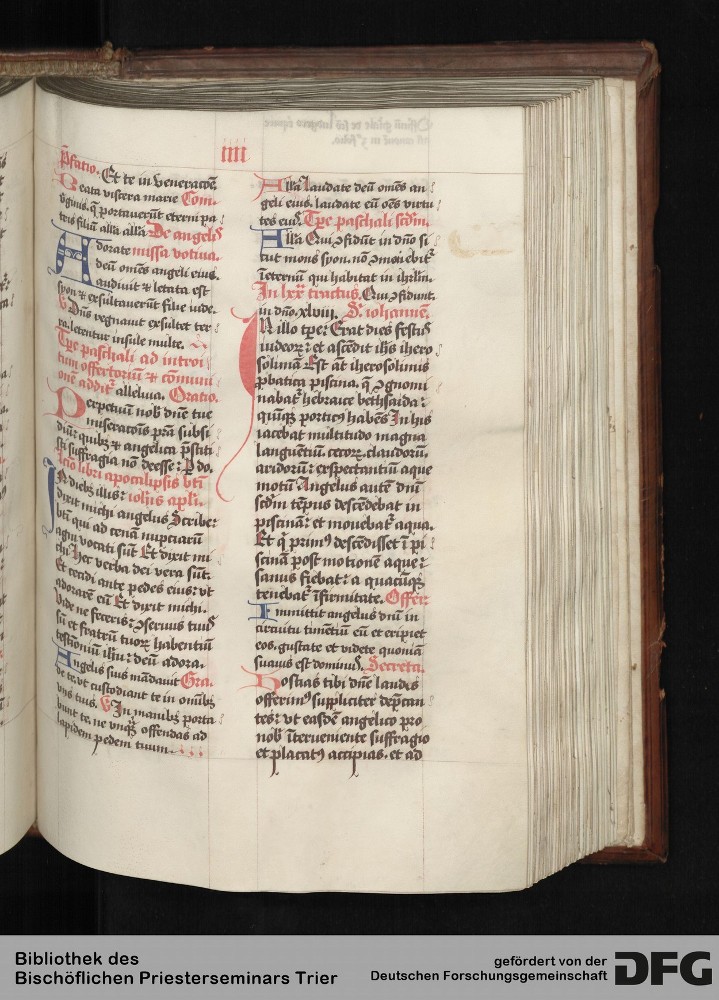 IIII
p̄fatio. Et te in veneratōe
Beata viscera marie Com.
v̄ginis. q̄ portauerūt eterni pa
tris filiū alla alla De angelis
Adorate missa votiua.
deū omēs angeli eius.
audiuit ⁊ letata est
syon ⁊ exsultauerūt filie iude.
V Dn̄s regnauit exsultet ter
ra. letentur insule multe.
Tp̄e paschali ad introi
tum offertoriū ⁊ cōmuni
onē addit᷑ alleluia. Oratio.
Perpetuū nob̄ dn̄e tue
miseratoīs p̄ra subsi
diū: quibꝫ ⁊ angelica p̄stiti
sti suffragia nō deesse: P do.
Lcio libri apocalipsis bt̄i
In diebꝫ illis: ioh̄is apl̄i.
dixit michi angelus Scribe:
bt̄i qui ad cenā nupciarū
agni vocati sūt Et dixit mi
chi Hec verba dei vera sūt.
Et cecidi ante pedes eius: vt
adorarē eū Et dixit michi.
Vide ne feceris: ꝯseruus tuus
sū et fratrū tuoꝝ habentiū
testioniū ih̄u: deū adora.
Angelis suis mādauit Gra.
de te. vt custodiant te in om̄ibꝫ
vijs tuis. V In manibꝫ porta
bunt te. ne vnq̄ꝫ offendas ad
lapidem pedem tuum.
Alla Laudate deū omēs an
geli eius. laudate eū oēs virtu
tes eiꝰ. Tp̄e paschali scd̄m.
Alla Qui ꝯfidūt in dn̄o si
cut mons syon. nō ꝯmouebit᷑
īeternū qui habitat in ihrl̄m.
In lxx tractus. Qui ꝯfidunt.
in dn̄o. xlviij. S. iohannē.
In illo tp̄e: Erat dies festus
iudeoꝝ: et ascēdit ih̄s ihero
solimā Est āt iherosolimis
p̄batica piscina. q̄ ꝯgnomi
nabat᷑ hebraice bethsaida:
quīqꝫ porticꝰ habēs In his
iacebat multitudo magna
languētiū. cecoꝝ. claudorū.
aridorū: exspectantiū aque
motū Angelus autē dn̄i
scd̄m tēpus descēdebat in
piscinā: et mouebat᷑ aqua.
Et q̄ primꝰ descēdisset ī pi
scinā post motionē aque:
sanus fiebat: a quacūqꝫ
tenebat᷑ īfirmitate. Offer:
Immittit angelus dn̄i in
circuitu timētiū eū et eripiet
eos. gustate et videte quoniā
suauis est dominꝰ. Secreta.
Hostias tibi dn̄e laudis
offerimꝰ suppliciter dep̄can
tes: vt easdē angelico pro
nob̄ īterueniente suffragio
et placatꝰ accipias. et ad
Bibliothek des
Bischöflichen Priesterseminars Trier
gefördert von der
Deutschen Forschungsgemeinschaft
DFG